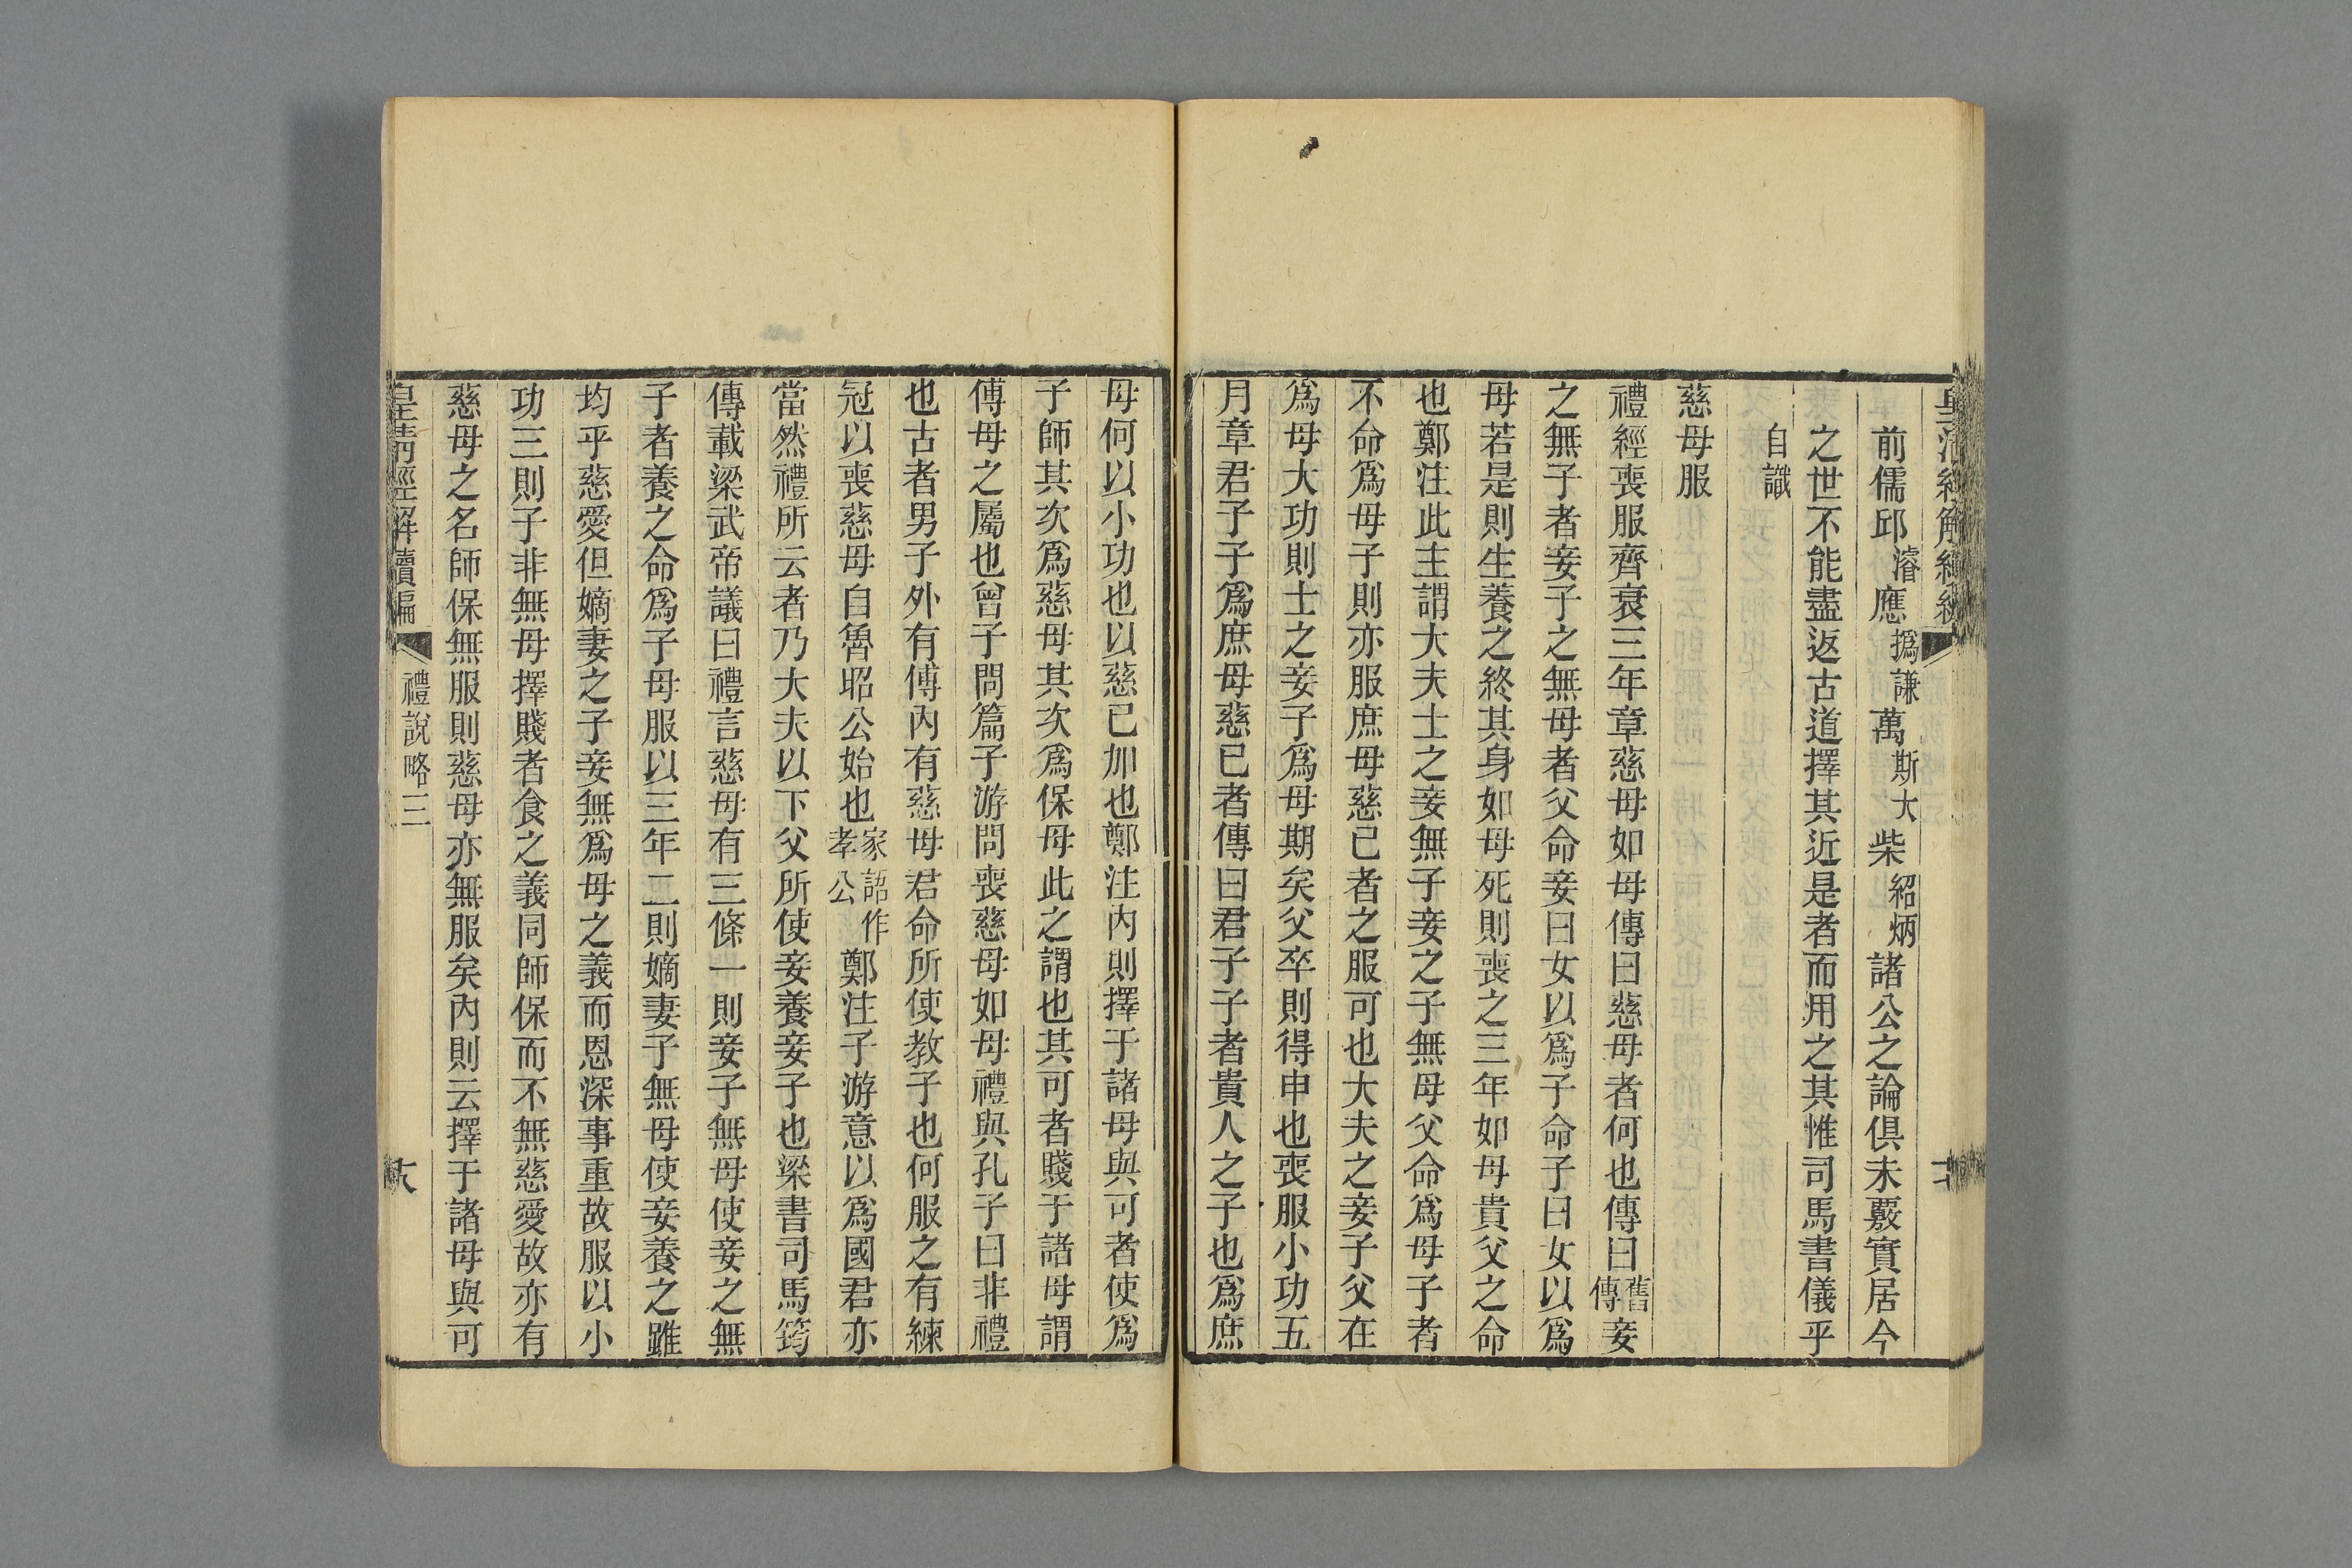 前儒邱濬應撝謙萬斯大柴紹炳諸公之論俱未覈實居今
之世不能盡返古道擇其近是者而用之其惟司馬書儀乎
自識
慈母服
禮經喪服齊衰三年章慈母如母傳曰慈母者何也傳曰舊傳妾
之無子者妾子之無母者父命妾曰女以爲子命子曰女以爲
母若是則生養之終其身如母死則喪之三年如母貴父之命
也鄭注此主謂大夫士之妾無子妾之子無母父命爲母子者
不命爲母子則亦服庶母慈已者之服可也大夫之妾子父在
爲母大功則士之妾子爲母期矣父卒則得申也喪服小功五
月章君子子爲庶母慈已者傳曰君子子者貴人之子也爲庶
母何以小功也以慈已加也鄭注內則擇于諸母與可者使爲
子師其次爲慈母其次爲保母此之謂也其可者賤于諸母謂
傅母之屬也曾子問篇子游問喪慈母如母禮與孔子曰非禮
也古者男子外有傅內有慈母君命所使教子也何服之有練
冠以喪慈母自魯昭公始也家語作孝公鄭注子游意以爲國君亦
當然禮所云者乃大夫以下父所使妾養妾子也梁書司馬筠
傳載梁武帝議曰禮言慈母有三條一則妾子無母使妾之無
子者養之命爲子母服以三年二則嫡妻子無母使妾養之雖
均乎慈愛但嫡妻之子妾無爲母之義而恩深事重故服以小
功三則子非無母擇賤者食之義同師保而不無慈愛故亦有
慈母之名師保無服則慈母亦無服矣內則云擇于諸母與可
皇清經解續編 禮說略三